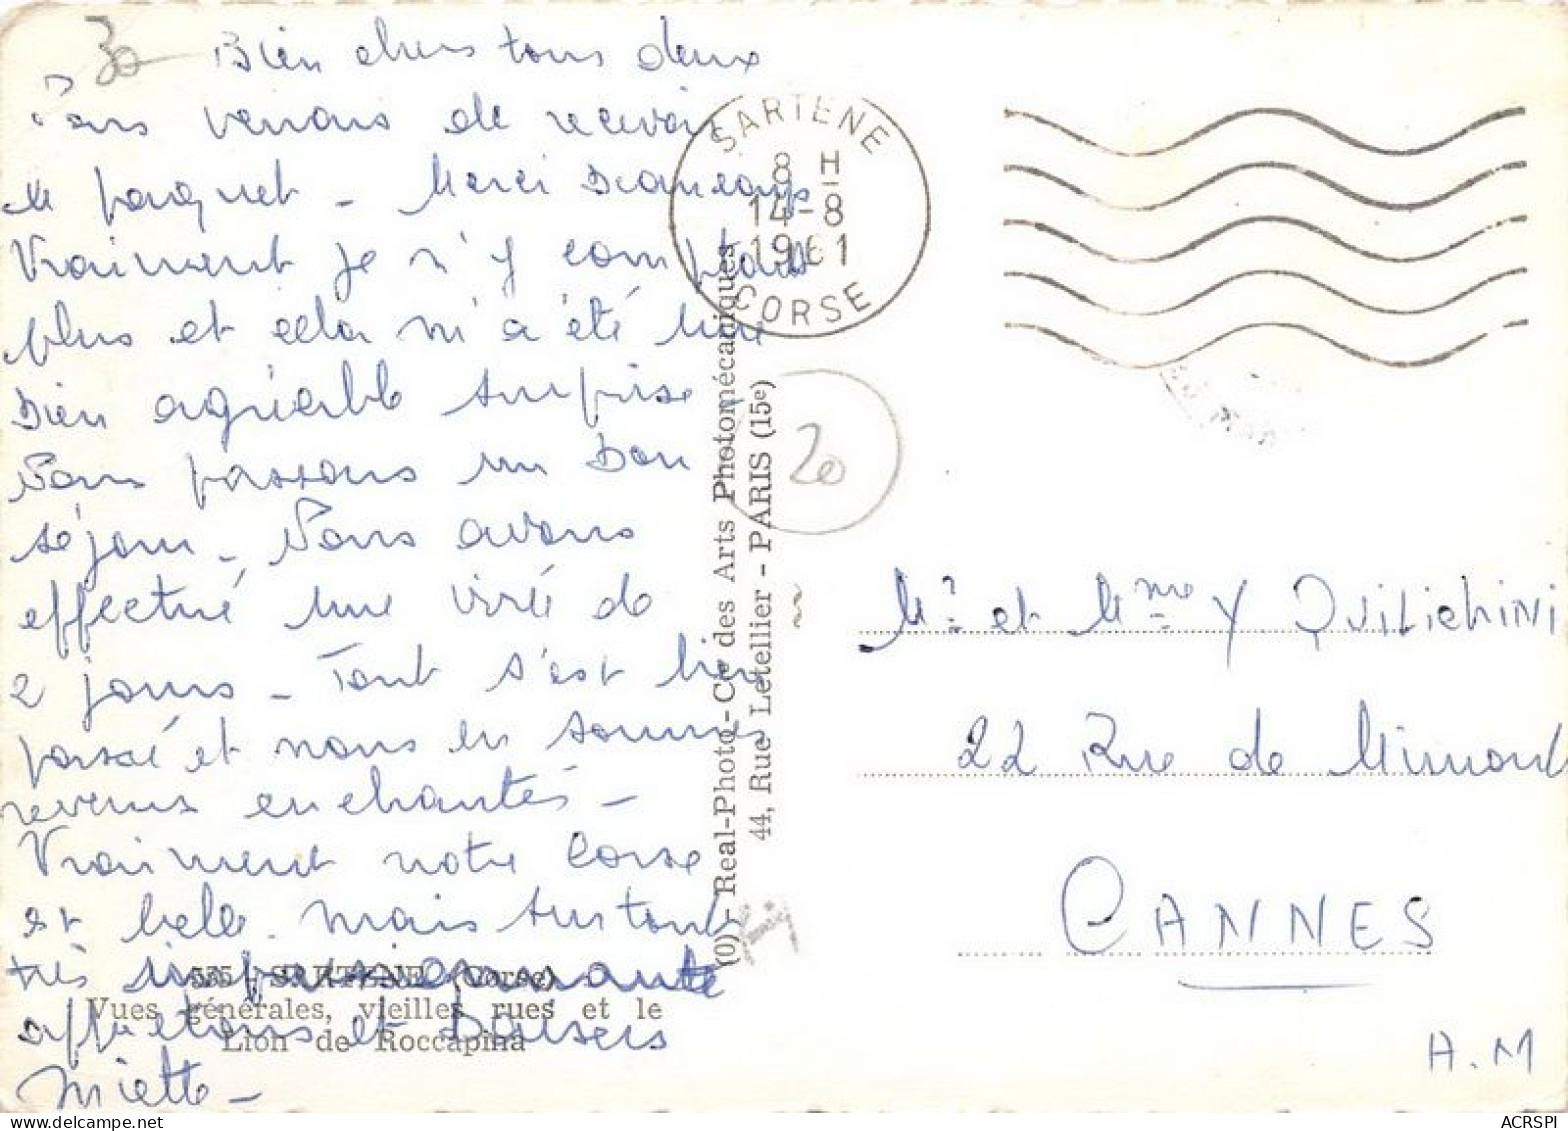 30
Bien chers tous deux
Nous venons de recevoir
le paquet - Merci Beaucoup
Vraiment je n'y comptais
plus et cela m'a été une
bien agréable surprise
Nous passons un bon
séjour - Nous avons
effectué une virée de
2 jours - Tout s'est bien
passé et nous en sommes
revenus enchantés -
Vraiment notre Corse
est belle mais surtout
très impressionnante
affections et Baisers
Miette -
535 - SARTENE (Corse)
Vues générales, vieilles rues et le
Lion de Roccapina
(0) - Real-Photo - Cie des Arts Photomécaniques
44, Rue Letellier - PARIS (15e)
SARTENE
8 H
14-8
1961
CORSE
20
Mr et Mme Y QUILIChiNi
22 Rue de Mimont
CANNES
A.M
ACRSPI